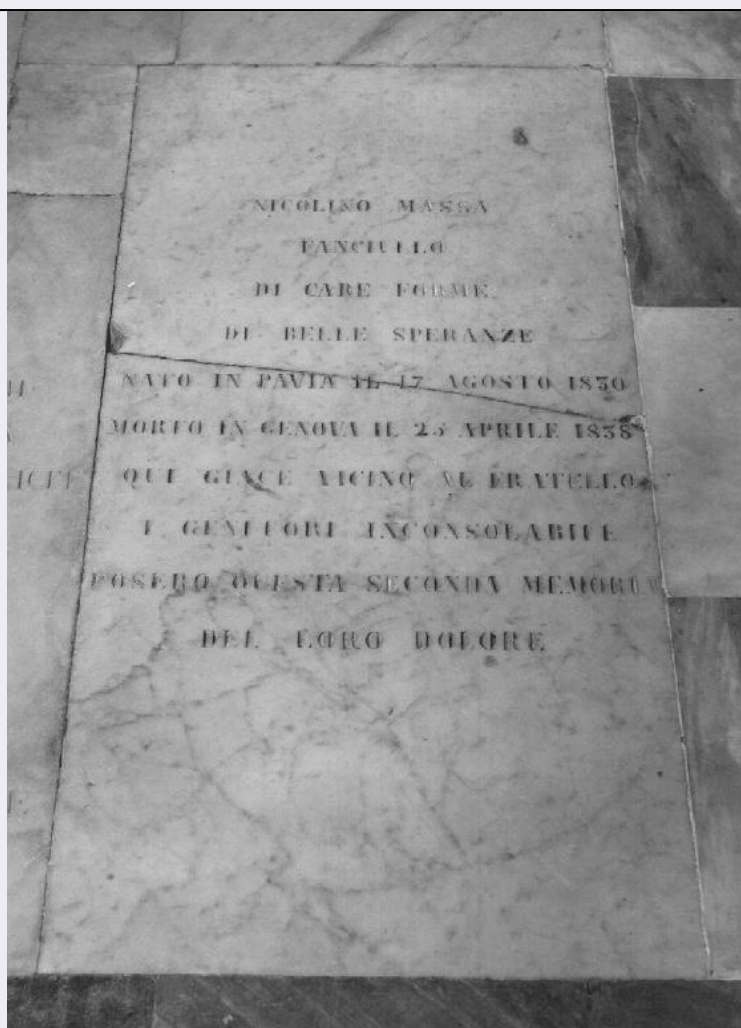 NICOLINO MASSA
FANCIULLO
DI CARE FORME
DI BELLE SPERANZE
NATO IN PAVIA IL 17 AGOSTO 1830
MORTO IN GENOVA IL 25 APRILE 1838
QUI GIACE VICINO AL FRATELLO
I GENITORI INCONSOLABILI
POSERO QUESTA SECONDA MEMORIA
DEL LORO DOLORE